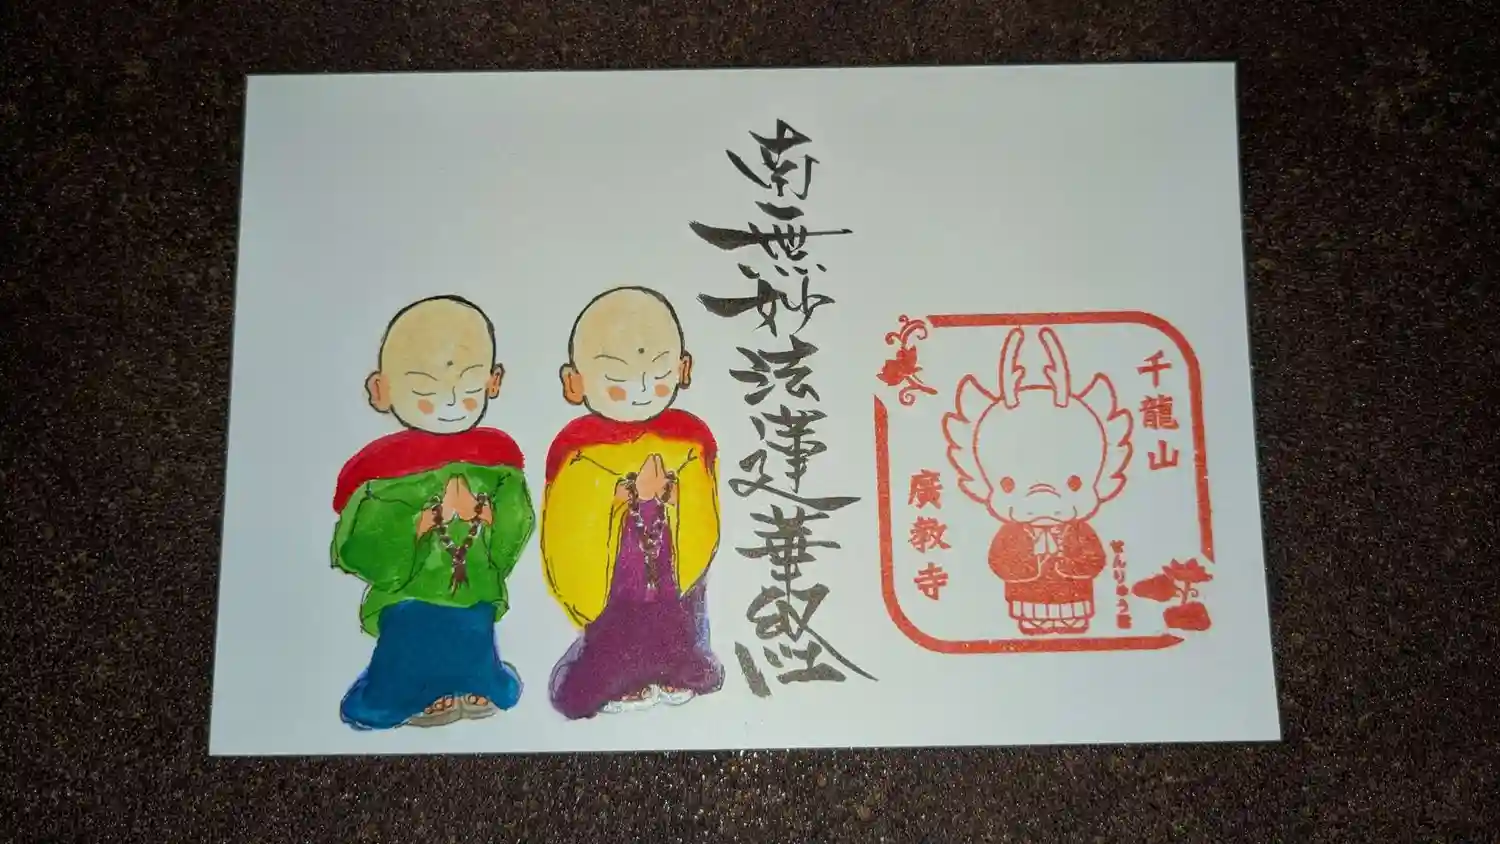 南無妙法蓮華経
千龍山
廣教寺
せんりゅう君